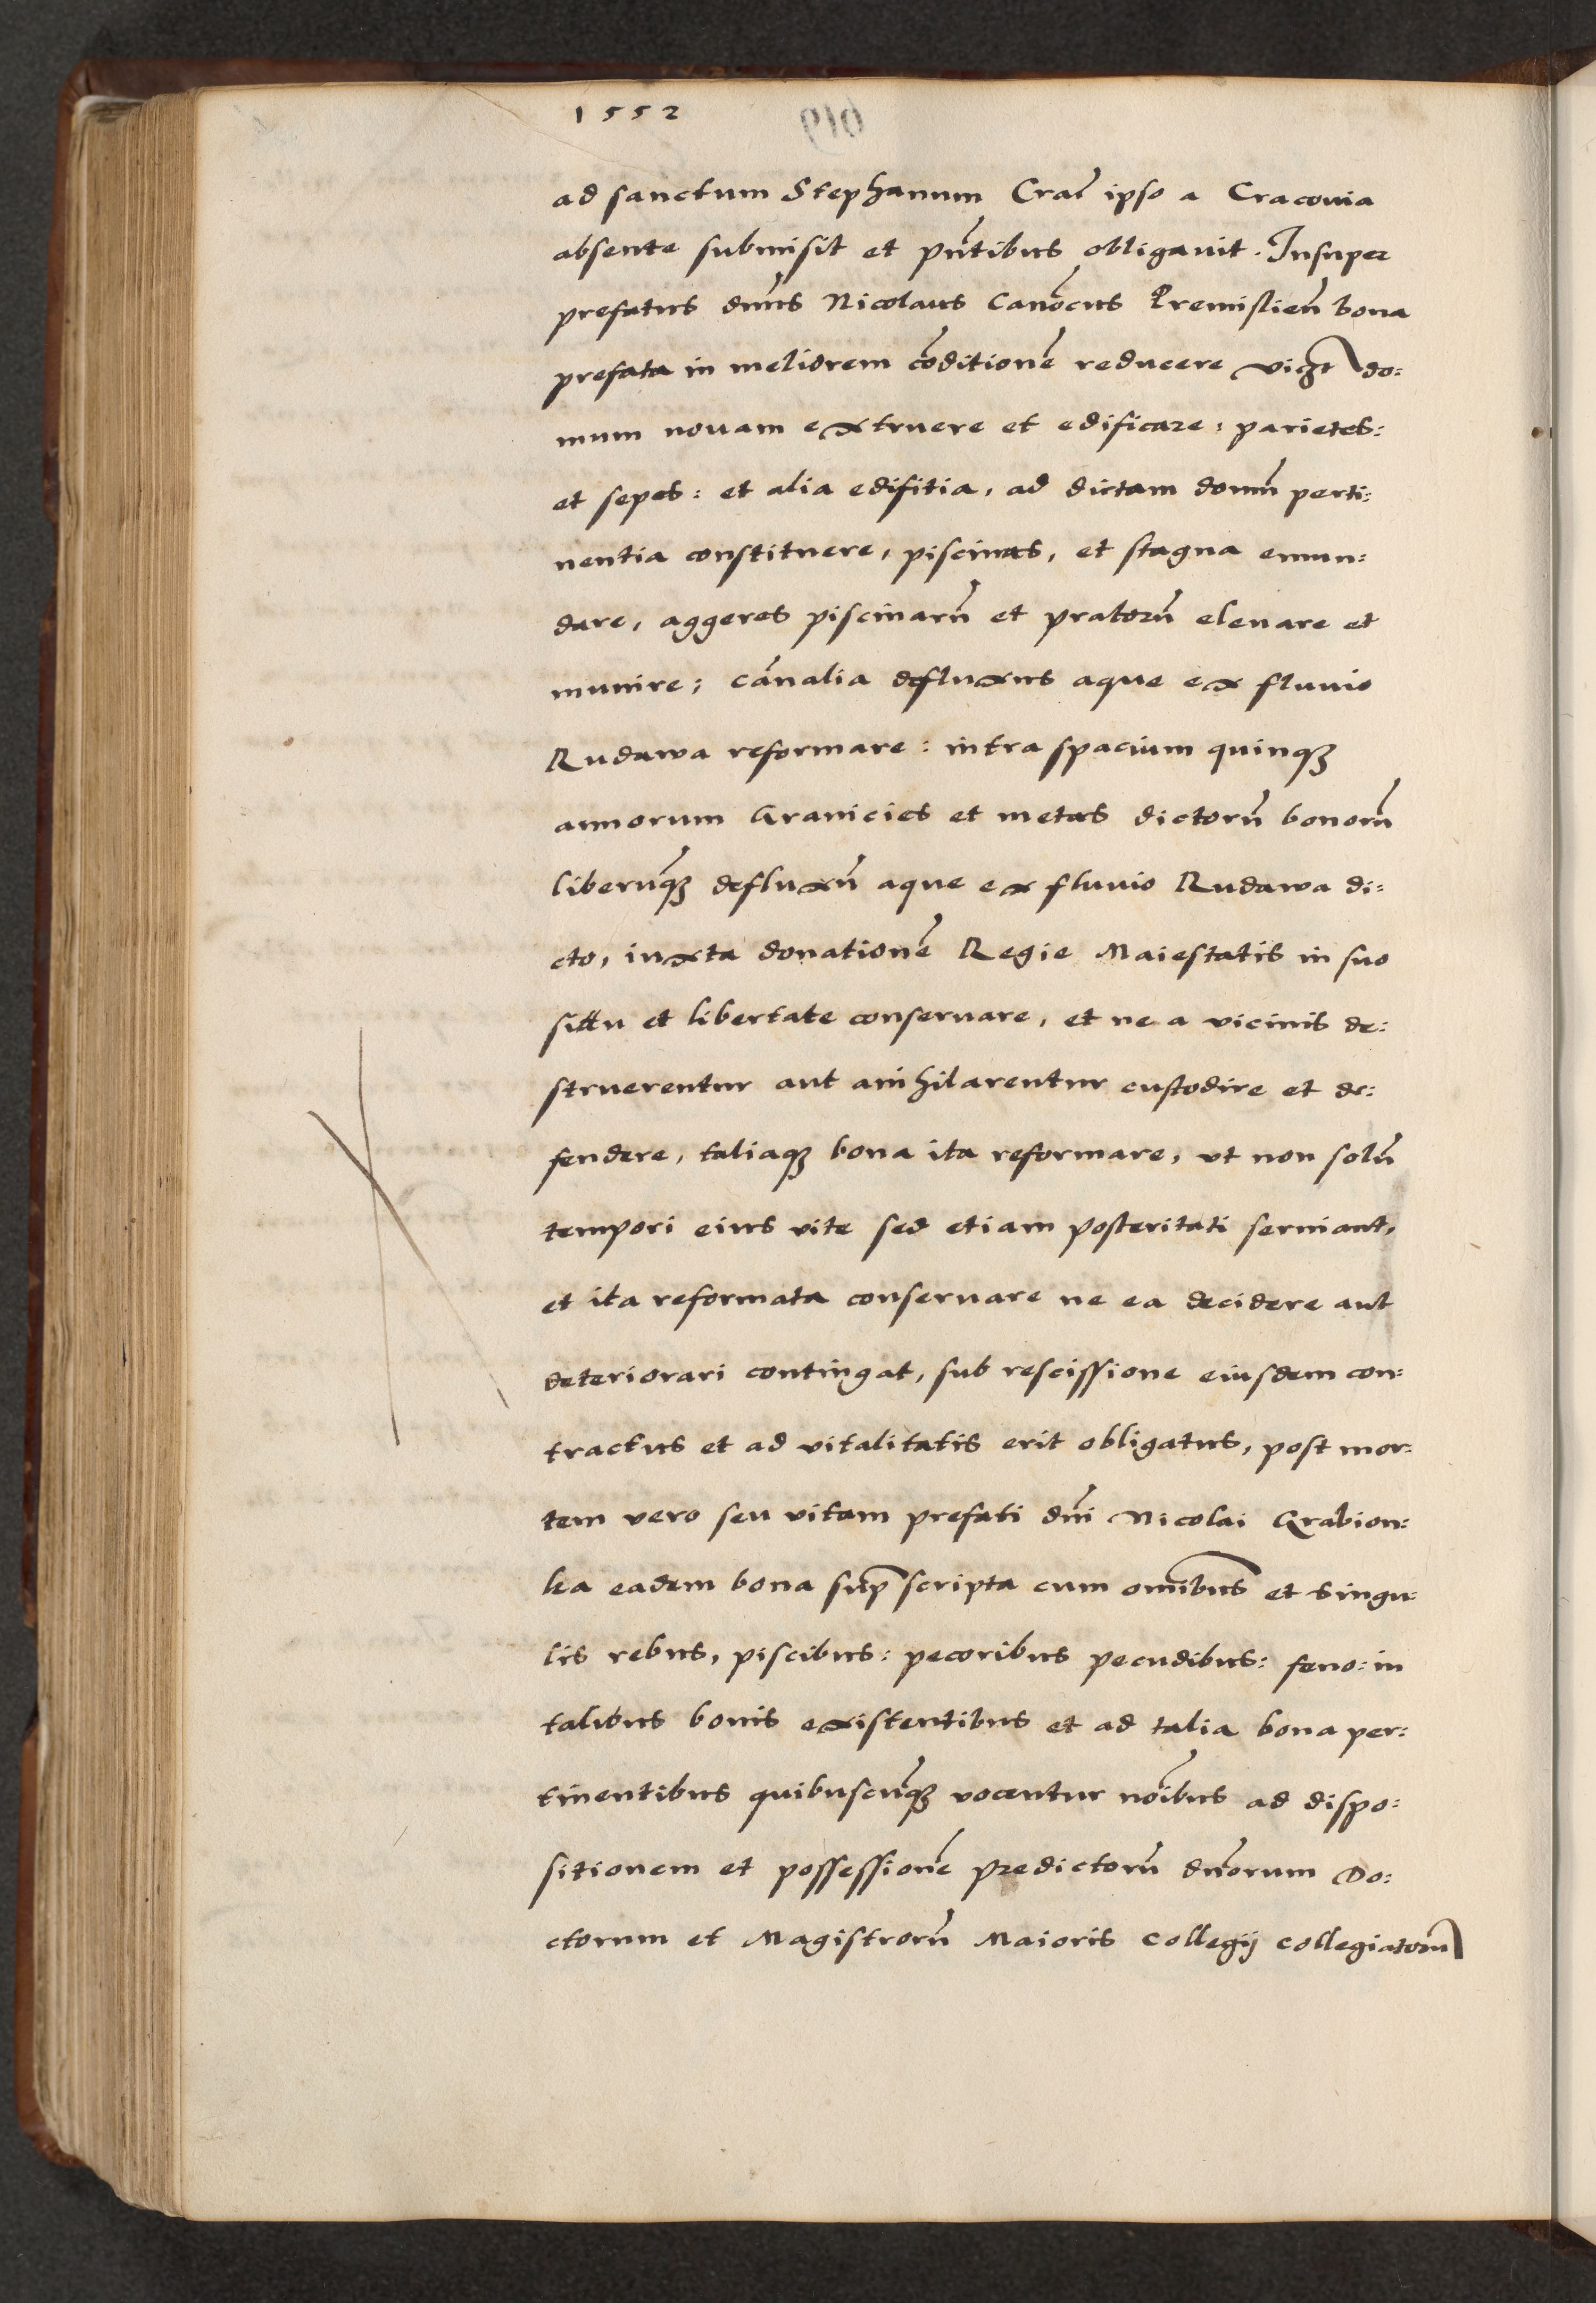 1552
ad sanctum Stephanum Crac̃ ipso a Cracouia
absente submisit et pñtibus obligauit. Insuper
prefatus dñus Nicolaus Canõcus Premislieñ bona
prefata in meliorem cõditionẽ reducere vicꝫt do:
mum nouam extruere et edificare: parietes:
et sepes: et alia edifitia, ad dictam domũ perti:
nentia constituere, piscinas, et stagna emun:
dare, aggeres piscinarũ et pratorũ eleuare et
munire; cãnalia defluxus aque ex fluuio
Rudawa reformare: intra spacium quinqꝫ
annorum Granicies et metas dictorũ bonorũ
liberũqꝫ defluxũ aque ex fluuio Rudawa di:
cto, iuxta donationẽ Regie Maiestatis in suo
sittu et libertate conseruare, et ne a vicinis de:
struerentur aut anihilarentur custodire et de:
fendere, taliaqꝫ bona ita reformare, vt non solũ
tempori eius vite sed etiam posteritati seruiant,
et ita reformata conseruare ne ea decidere aut
deteriorari contingat, sub rescissione eiusdem con:
tractus et ad vitalitatis erit obligatus, post mor:
tem vero seu vitam prefati dñi Nicolai Grabion:
ka eadem bona sup̃scripta cum omĩbus et singu:
lis rebus, piscibus: pecoribus pecudibus: feno: in
talibus bonis existentibus et ad talia bona per:
tinentibus quibuscũqꝫ vocentur nõibus ad dispo:
sitionem et possessionẽ predictorũ dñorum Do:
ctorum et Magistrorũ Maioris Collegij collegiatorũ